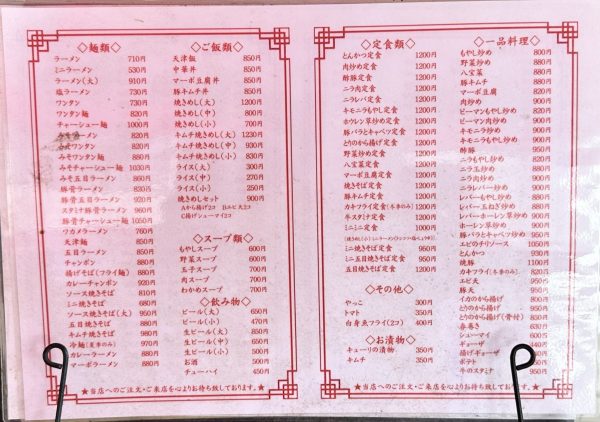 ◇麺類◇
ラーメン 710円
ミニラーメン 530円
ラーメン(大) 910円
塩ラーメン 730円
ワンタン 730円
ワンタン麺 820円
チャーシュー麺 1000円
ラーメン 820円
ワンタン 820円
みそワンタン麺 880円
みそチャーシュー麺 1030円
みそ五目ラーメン 880円
豚骨ラーメン 820円
豚骨五目ラーメン 920円
スタミナ豚骨ラーメン 960円
豚骨チャーシュー麺 1050円
ワカメラーメン
天津麺
五目ラーメン
チャンポン 880円
揚げそば(フライ麺) 880円
カレーチャンポン 920円
ソース焼きそば 810円
ミニ焼きそば 680円
ソース焼きそば(大) 950円
五目焼きそば 880円
キムチ焼きそば 980円
冷麺(夏季のみ) 950円
カレーラーメン 880円
マーボラーメン 880円
◇ご飯類◇
天津飯 850円
中華丼 850円
マーボ豆腐丼 850円
豚キムチ丼 850円
焼きめし(大) 1200円
焼きめし(中) 800円
焼きめし(小) 700円
キムチ焼きめし(大) 1230円
キムチ焼きめし(中) 930円
キムチ焼きめし(小) 830円
ライス(大) 350円
ライス(中) 270円
ライス(小) 250円
焼きめしセット 900円
Aから揚げ2コ Bエビ天2コ
C揚げシューマイ2コ
◇スープ類◇
もやしスープ 600円
野菜スープ 600円
玉子スープ 700円
肉スープ 700円
わかめスープ 700円
◇飲み物◇
ビール(大) 650円
ビール(小) 470円
生ビール(大) 850円
生ビール(中) 650円
生ビール(小) 500円
お酒 500円
チューハイ 450円
★当店へのご注文・ご来店を心よりお待ち致しております。★
◇定食類◇
とんかつ定食 1200円
肉炒め定食 1200円
酢豚定食 1200円
ニラ肉定食 1200円
ニラレバ定食 1200円
キモニラもやし定食 1200円
ホウレン草炒め定食 1200円
豚バラとキャベツ定食 1200円
とりのから揚げ定食 1200円
野菜炒め定食 1200円
八宝菜定食 1200円
マーボ定食 1200円
焼きそば定食 1200円
豚キムチ定食 1200円
カキフライ定食(冬季のみ) 1200円
牛スタミナ定食 1200円
ミニミニ定食 1000円
ミニ焼きそば定食 950円
ミニ五目焼きそば定食 950円
五目焼きそば定食 1200円
◇その他◇
やっこ 300円
トマト 350円
白身魚フライ(2ヶ) 400円
◇お漬物◇
キューリの漬物 350円
キムチ 350円
◇一品料理◇
もやし炒め 800円
野菜炒め 880円
八宝菜 880円
マーボ豆腐 820円
肉炒め 900円
ピーマンもやし炒め 820円
ピーマン肉炒め 900円
キモニラもやし炒め 900円
キモニラ炒め 900円
酢豚 950円
ニラもやし炒め 820円
ニラ玉炒め 820円
ニラ肉炒め 900円
ニラレバー炒め 900円
レバーもやし炒め 900円
レバー玉ねぎ炒め 900円
レバーホーレン草炒め 950円
ホーレン草炒め 900円
豚バラとキャベツ炒め 950円
エビのチリソース 1050円
とんかつ 930円
焼豚 1100円
カキフライ(冬季のみ) 820円
エビ天 950円
豚天 950円
イカのから揚げ 850円
とりのから揚げ 850円
とりのから揚げ(骨付)
春巻き
シューマイ
ギョーザ
揚げギョーザ
ポテト
牛のスタミナ 950円
★当店へのご注文・ご来店を心よりお待ち致しております。★